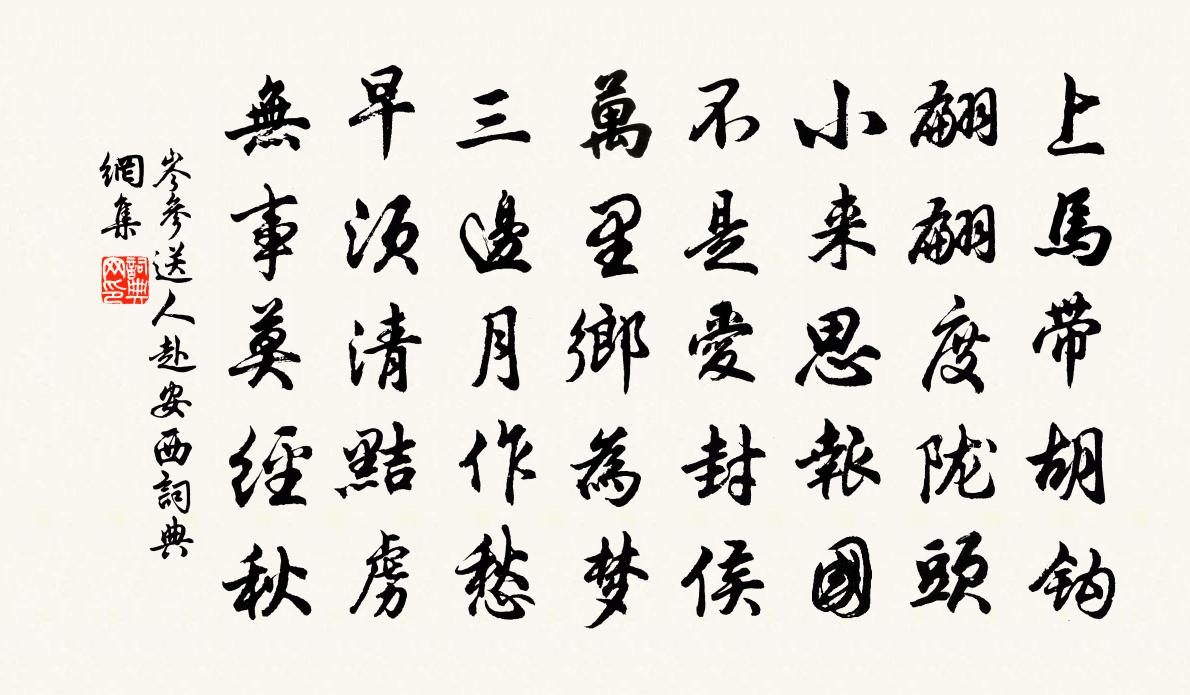 上馬带胡鈎
翩翩度陇頭
小来思報國
不是愛封侯
萬里鄉為梦
三邊月作愁
早須清黠虜
無事莫經秋
岑參送人赴安西詞典
網集
詞典網印